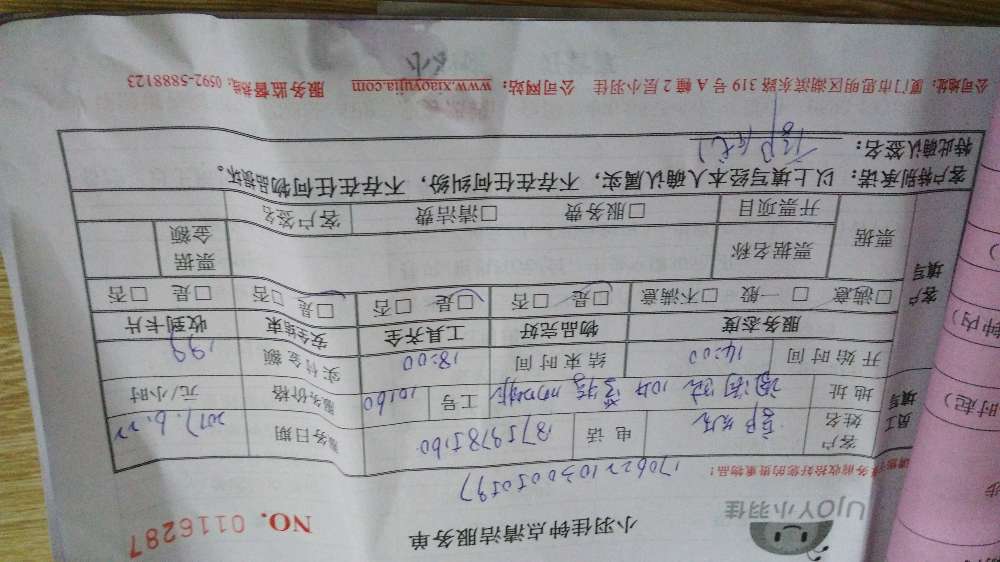 小羽佳钟点清洁服务单
UJOY小羽佳
NO. 0116287
1706221030050597
服务前收拾好您的贵重物品！
员工填写
客户姓名 电话 服务日期 2017.6.22
地址 工号 10160 服务价格 元/小时
开始时间 14:00 结束时间 18:00 实付金额 199
客户填写
服务态度 物品完好 工具齐全 安全结束 收到卡片
□满意 □一般 □不满意 □是 □否 □是 □否 □是 □否 □是 □否
票据 票据名称 票据金额
开票项目 □服务费 □清洁费 客户签名
客户特别承诺：以上填写经本人确认属实，不存在任何纠纷，不存在任何物品损坏。
特此确认签名：
公司地址：厦门市思明区湖滨东路319号A幢2层小羽佳 公司网站：www.xiaoyujia.com 服务监督热线：0592-5888123
钟内）
时起）
步